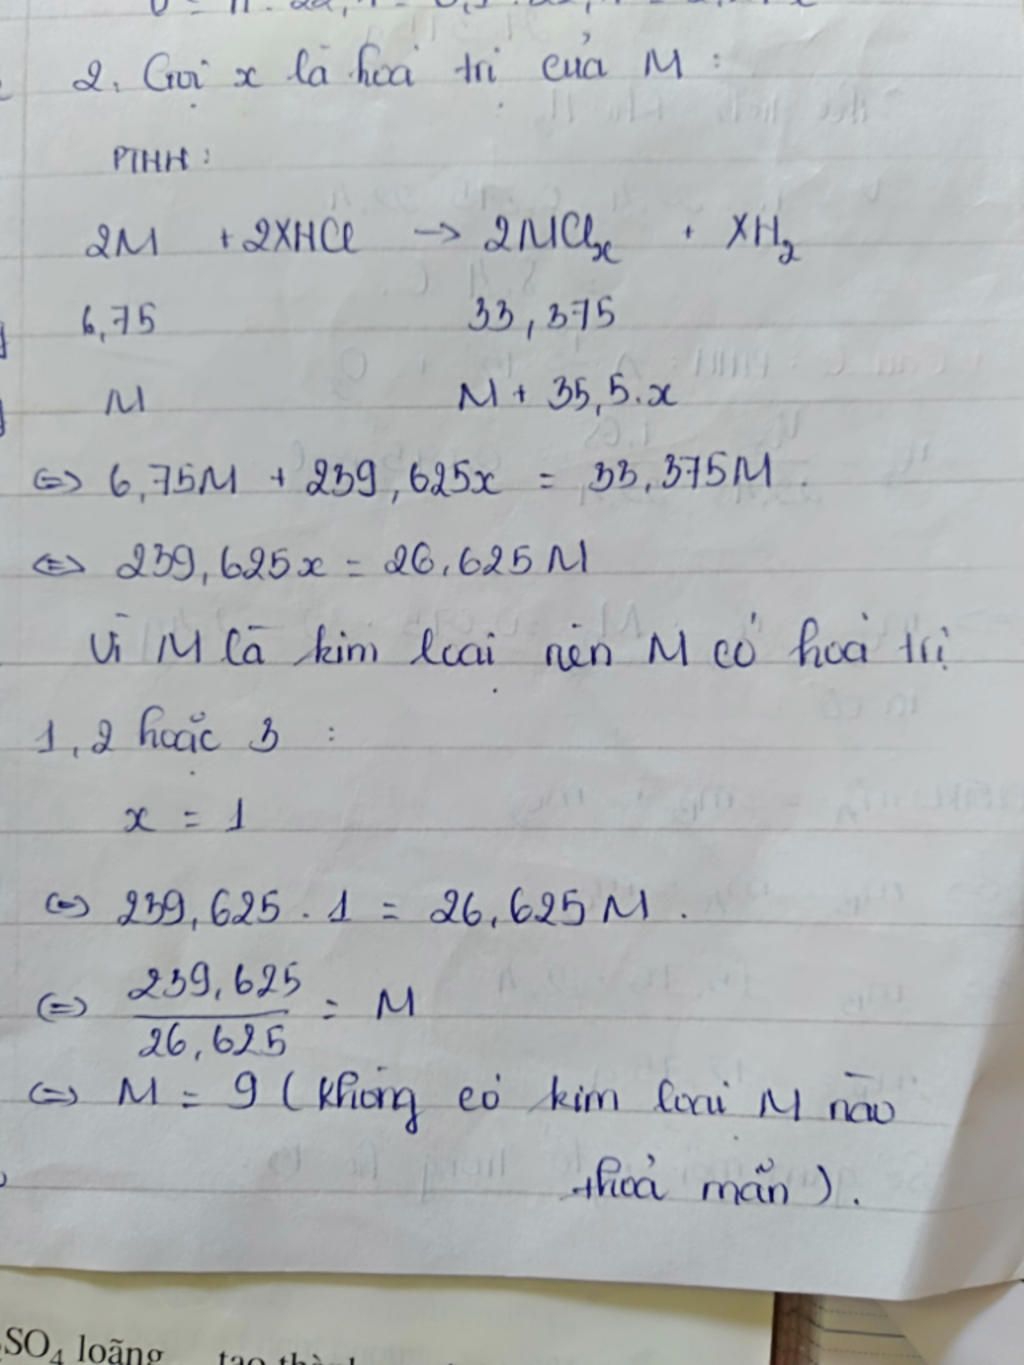 2. Gọi x là hoá trị của M :
PTHH :
2M + 2XHCl → 2MClx + XH2
6,75 33,375
M M + 35,5.x
<=> 6,75M + 239,625x = 33,375M.
<=> 239,625x = 26,625M
Vì M là kim loại nên M có hoá trị
1,2 hoặc 3 :
x = 1
<=> 239,625 . 1 = 26,625M.
<=> 239,625 / 26,625 = M
<=> M = 9 (không có kim loại M nào
thoả mãn).
SO4 loãng